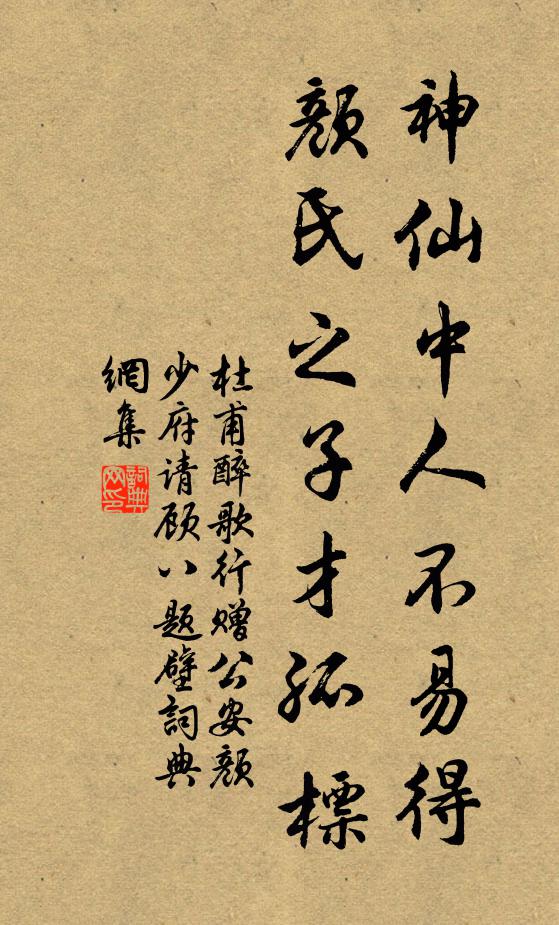 神仙中人不易得
颜氏之子才孤標
杜甫醉歌行赠公安颜
少府请顾八题壁詞典
網集
詞典
网印